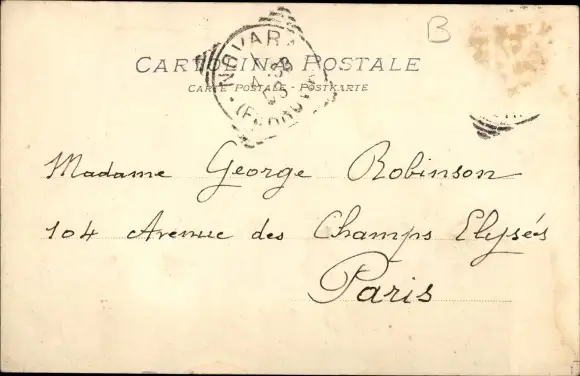 B
CARTOLINA POSTALE
CARTE POSTALE - POSTKARTE
NOVARA
(FERROVIA)
Madame George Robinson
104 Avenue des Champs Elysés
Paris